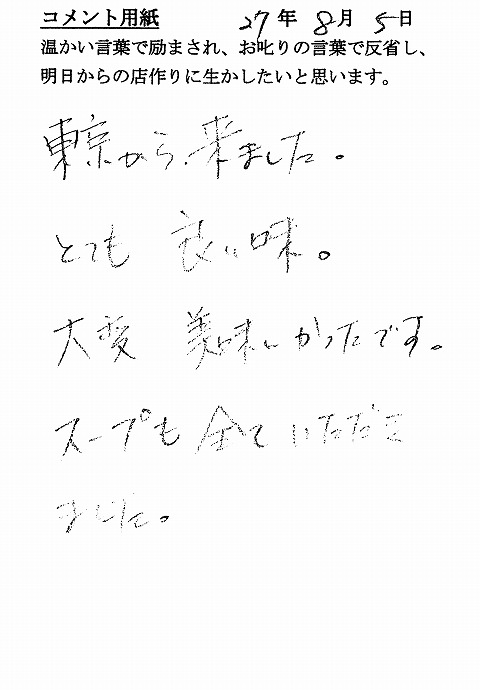 コメント用紙 27年8月5日
温かい言葉で励まされ、お叱りの言葉で反省し、
明日からの店作りに生かしたいと思います。
東京から来ました。
とても 良い味。
大変 美味いかったです。
スープも全ていただき
ました。